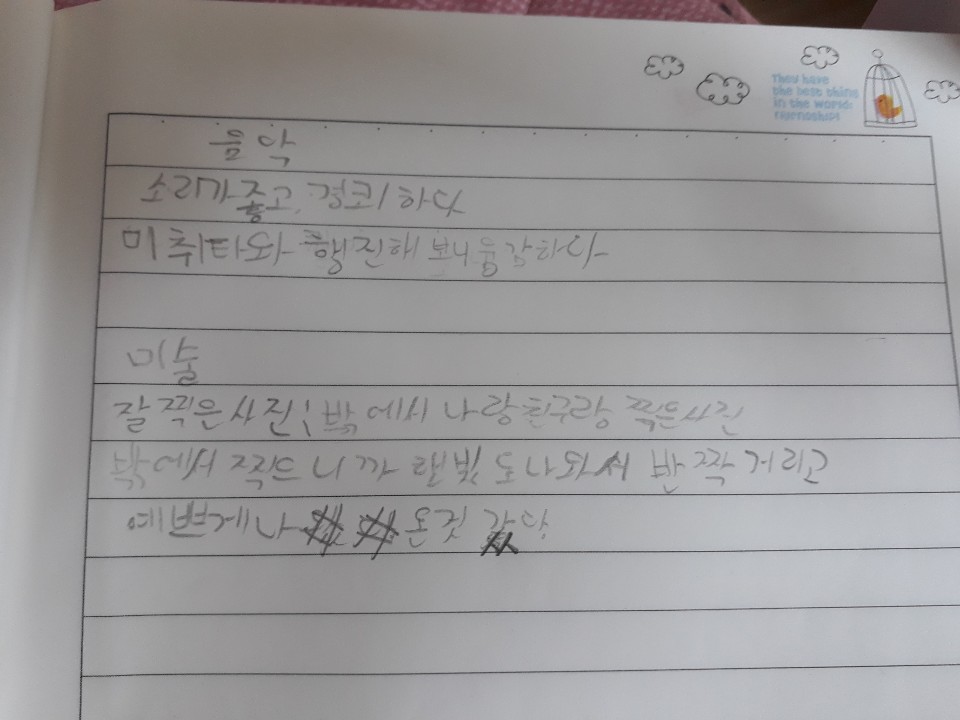 They have
the best thing
in the world:
음악
소리가 좋고, 하다
취타와 행진해
미술
잘 찍은 사진! 밖에서 나랑 친구랑 찍은 사진
밖에서 도 나와서 반짝 거리고
예쁘게 나 온것 같다.